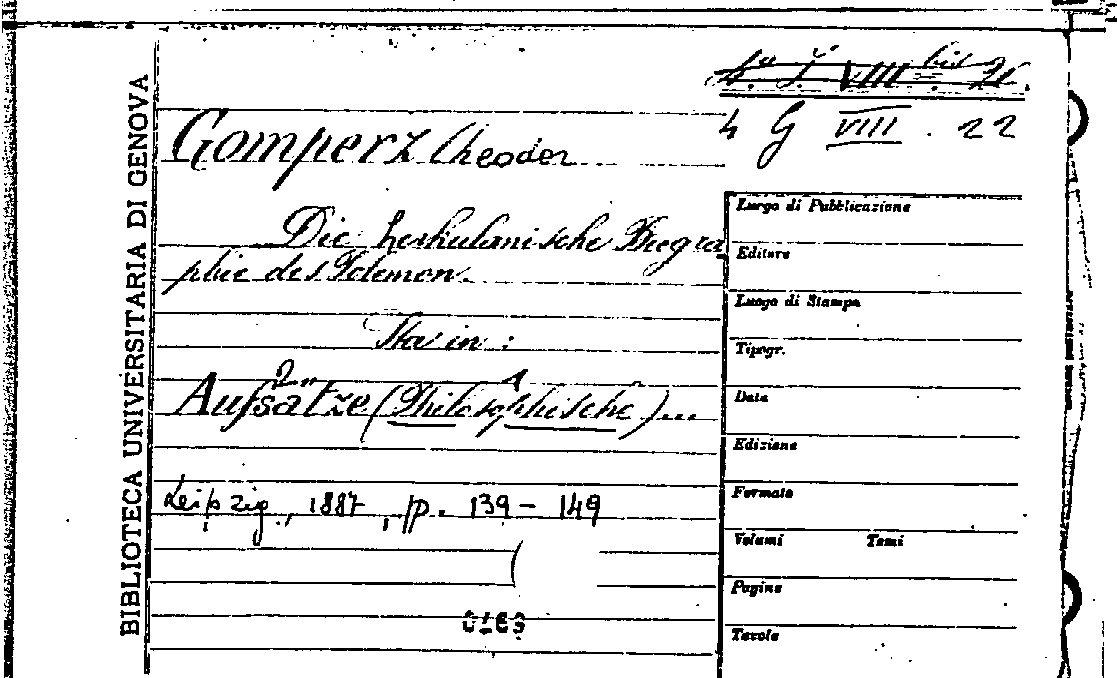 BIBLIOTECA UNIVERSITARIA DI GENOVA
VIII bis
4 G VIII . 22
Gomperz Theodor
Die herkulanische Biogra
phie des Polemon.
Sta in :
2 1
Aufsätze (Philosophische)...
Leipzig, 1887, p. 139 - 149
Luogo di Pubblicazione
Editore
Luogo di Stampa
Tipogr.
Data
Edizione
Formato
Volumi Tomi
Pagine
Tavole